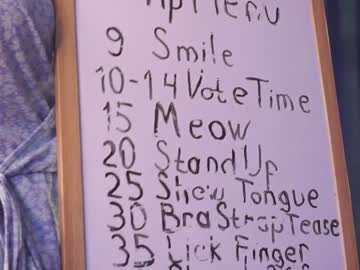 Tip Menu
9 Smile
10-14 Vote Time
15 Meow
20 Stand Up
25 Show Tongue
30 Bra Strap Tease
35 Lick Finger